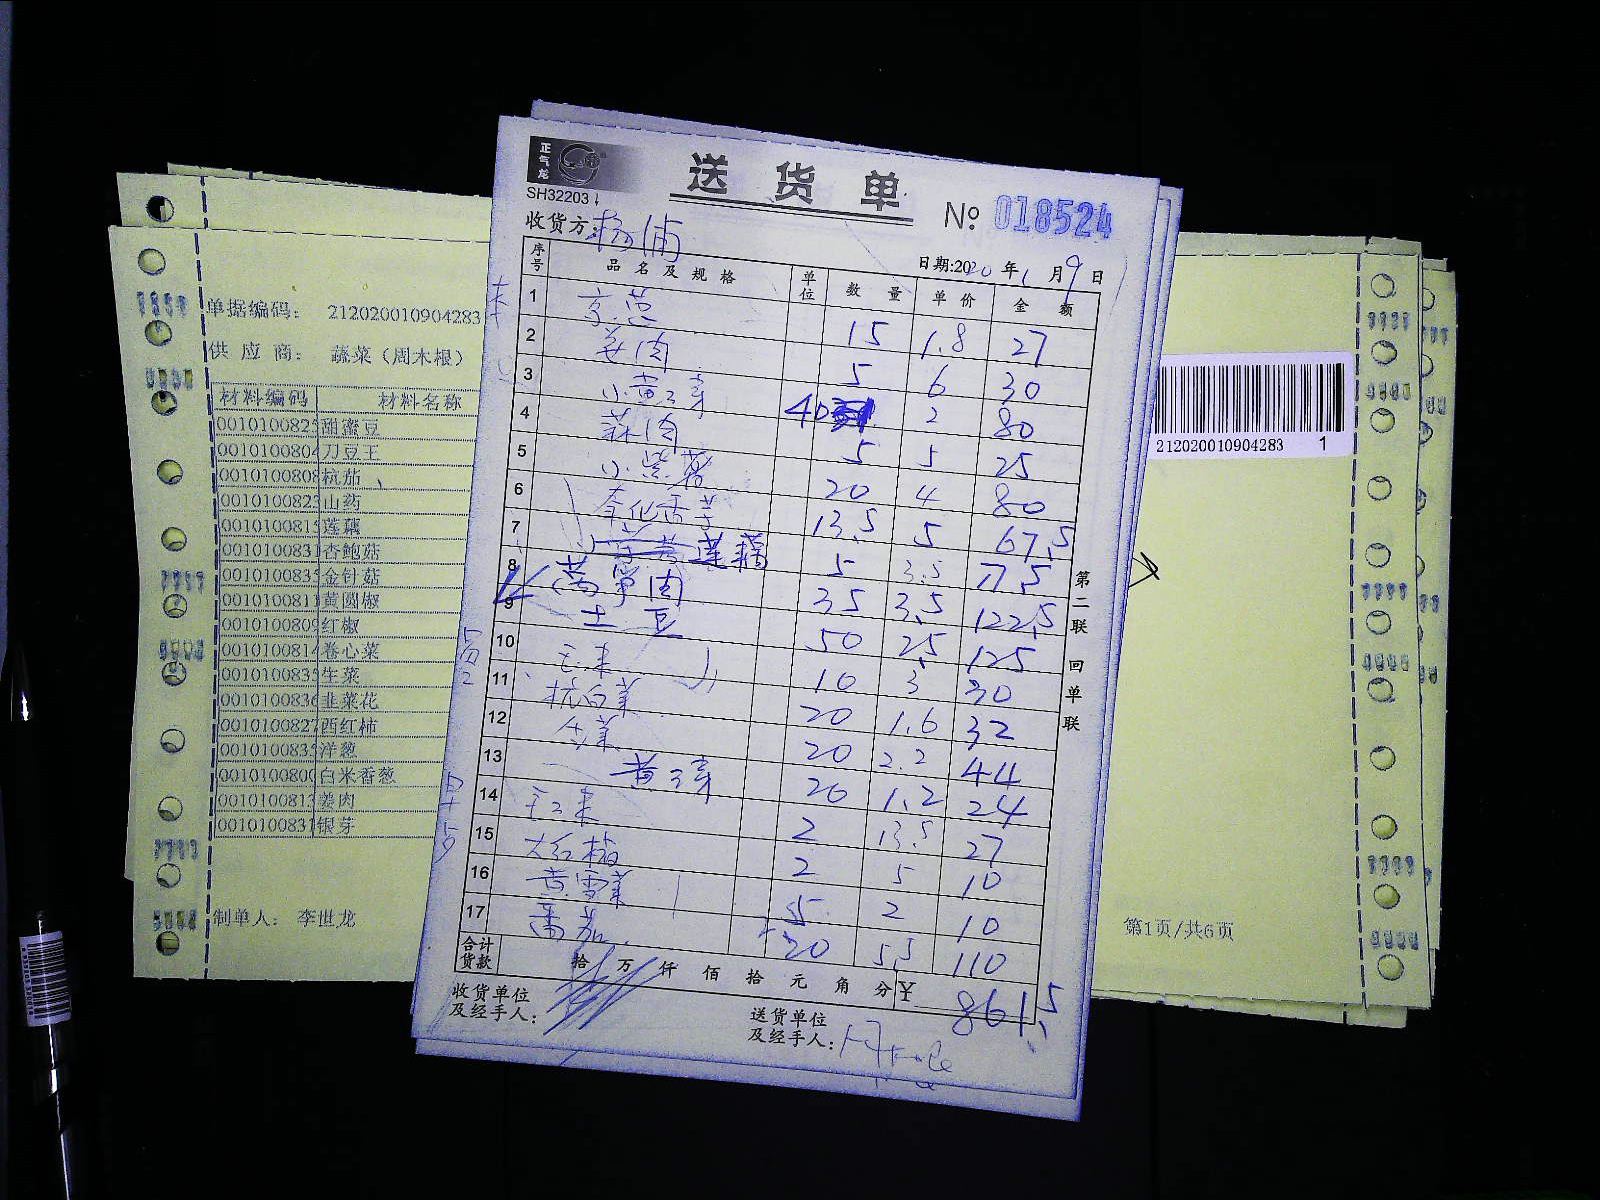 正气龙
送货单
SH32203
No: 018524
收货方: 杨浦
日期:2020年1月9日
序号 品名及规格 单位 数量 单价 金额
1 京葱 15 1.8 27
2 姜肉 5 6 30
3 小黄瓜 40 2 80
4 蒜肉 5 5 25
5 小紫薯 20 4 80
6 奉化香芋 13.5 5 67.5
7 莲藕 5 3.5 17.5
8 莴笋肉 35 3.5 122.5
9 土豆 50 2.5 125
10 玉米 10 3 30
11 杭白菜 20 1.6 32
12 20 2.2 44
13 20 1.2 24
14 2 13.5 27
15 大红椒 2 5 10
16 黄雪菜 5 2 10
17 番茄 20 5.5 110
合计货款 拾 万 仟 佰 拾 元 角 分 ¥ 861.5
收货单位及经手人:
送货单位及经手人:
第二联 回单联
单据编码: 212020010904283
供应商: 蔬菜（周木根）
材料编码 材料名称
0010100825 甜蜜豆
0010100804 刀豆王
0010100808 杭茄
0010100823 山药
0010100815 莲藕
0010100831 杏鲍菇
0010100833 金针菇
0010100811 黄圆椒
0010100809 红椒
0010100814 卷心菜
0010100835 生菜
0010100836 韭菜花
0010100827 西红柿
0010100835 洋葱
0010100800 白米香葱
0010100813 姜肉
0010100831 银芽
制单人: 李世龙
212020010904283 1
第1页/共6页